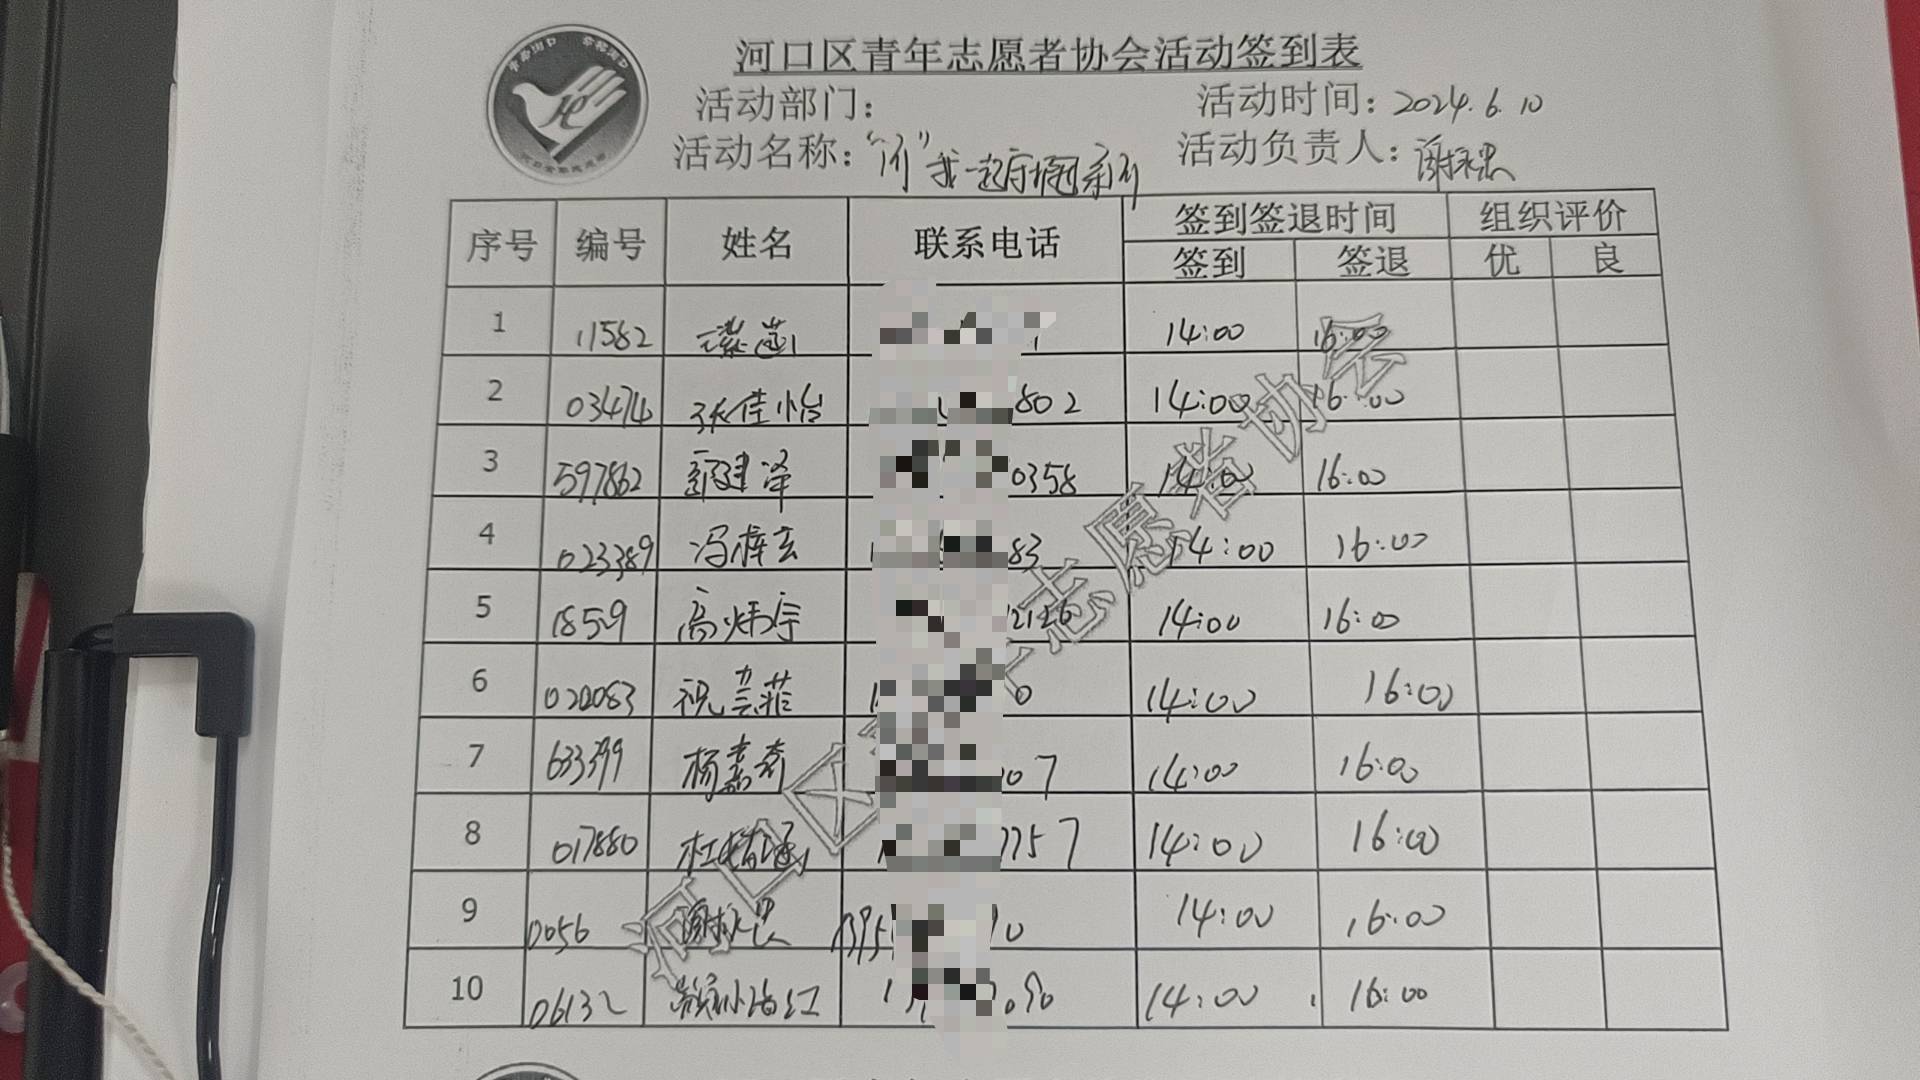 河口区青年志愿者协会活动签到表
活动部门： 活动时间：2024.6.10
活动名称："河"我一起守护 系列 活动负责人：谢
序号 编号 姓名 联系电话 签到签退时间 组织评价
签到 签退 优 良
1 11582 14:00 16:00
2 03474 张佳怡 802 14:00 16:00
3 597862 郭建泽 0358 14:00 16:00
4 023389 冯 玄 83 14:00 16:00
5 18509 高炜宇 2126 14:00 16:00
6 020083 祝芸菲 0 14:00 16:00
7 633399 杨嘉奇 07 14:00 16:00
8 017880 杜 涵 7757 14:00 16:00
9 0056 谢 1395 90 14:00 16:00
10 06132 红 090 14:00 16:00
河口区青年志愿者协会